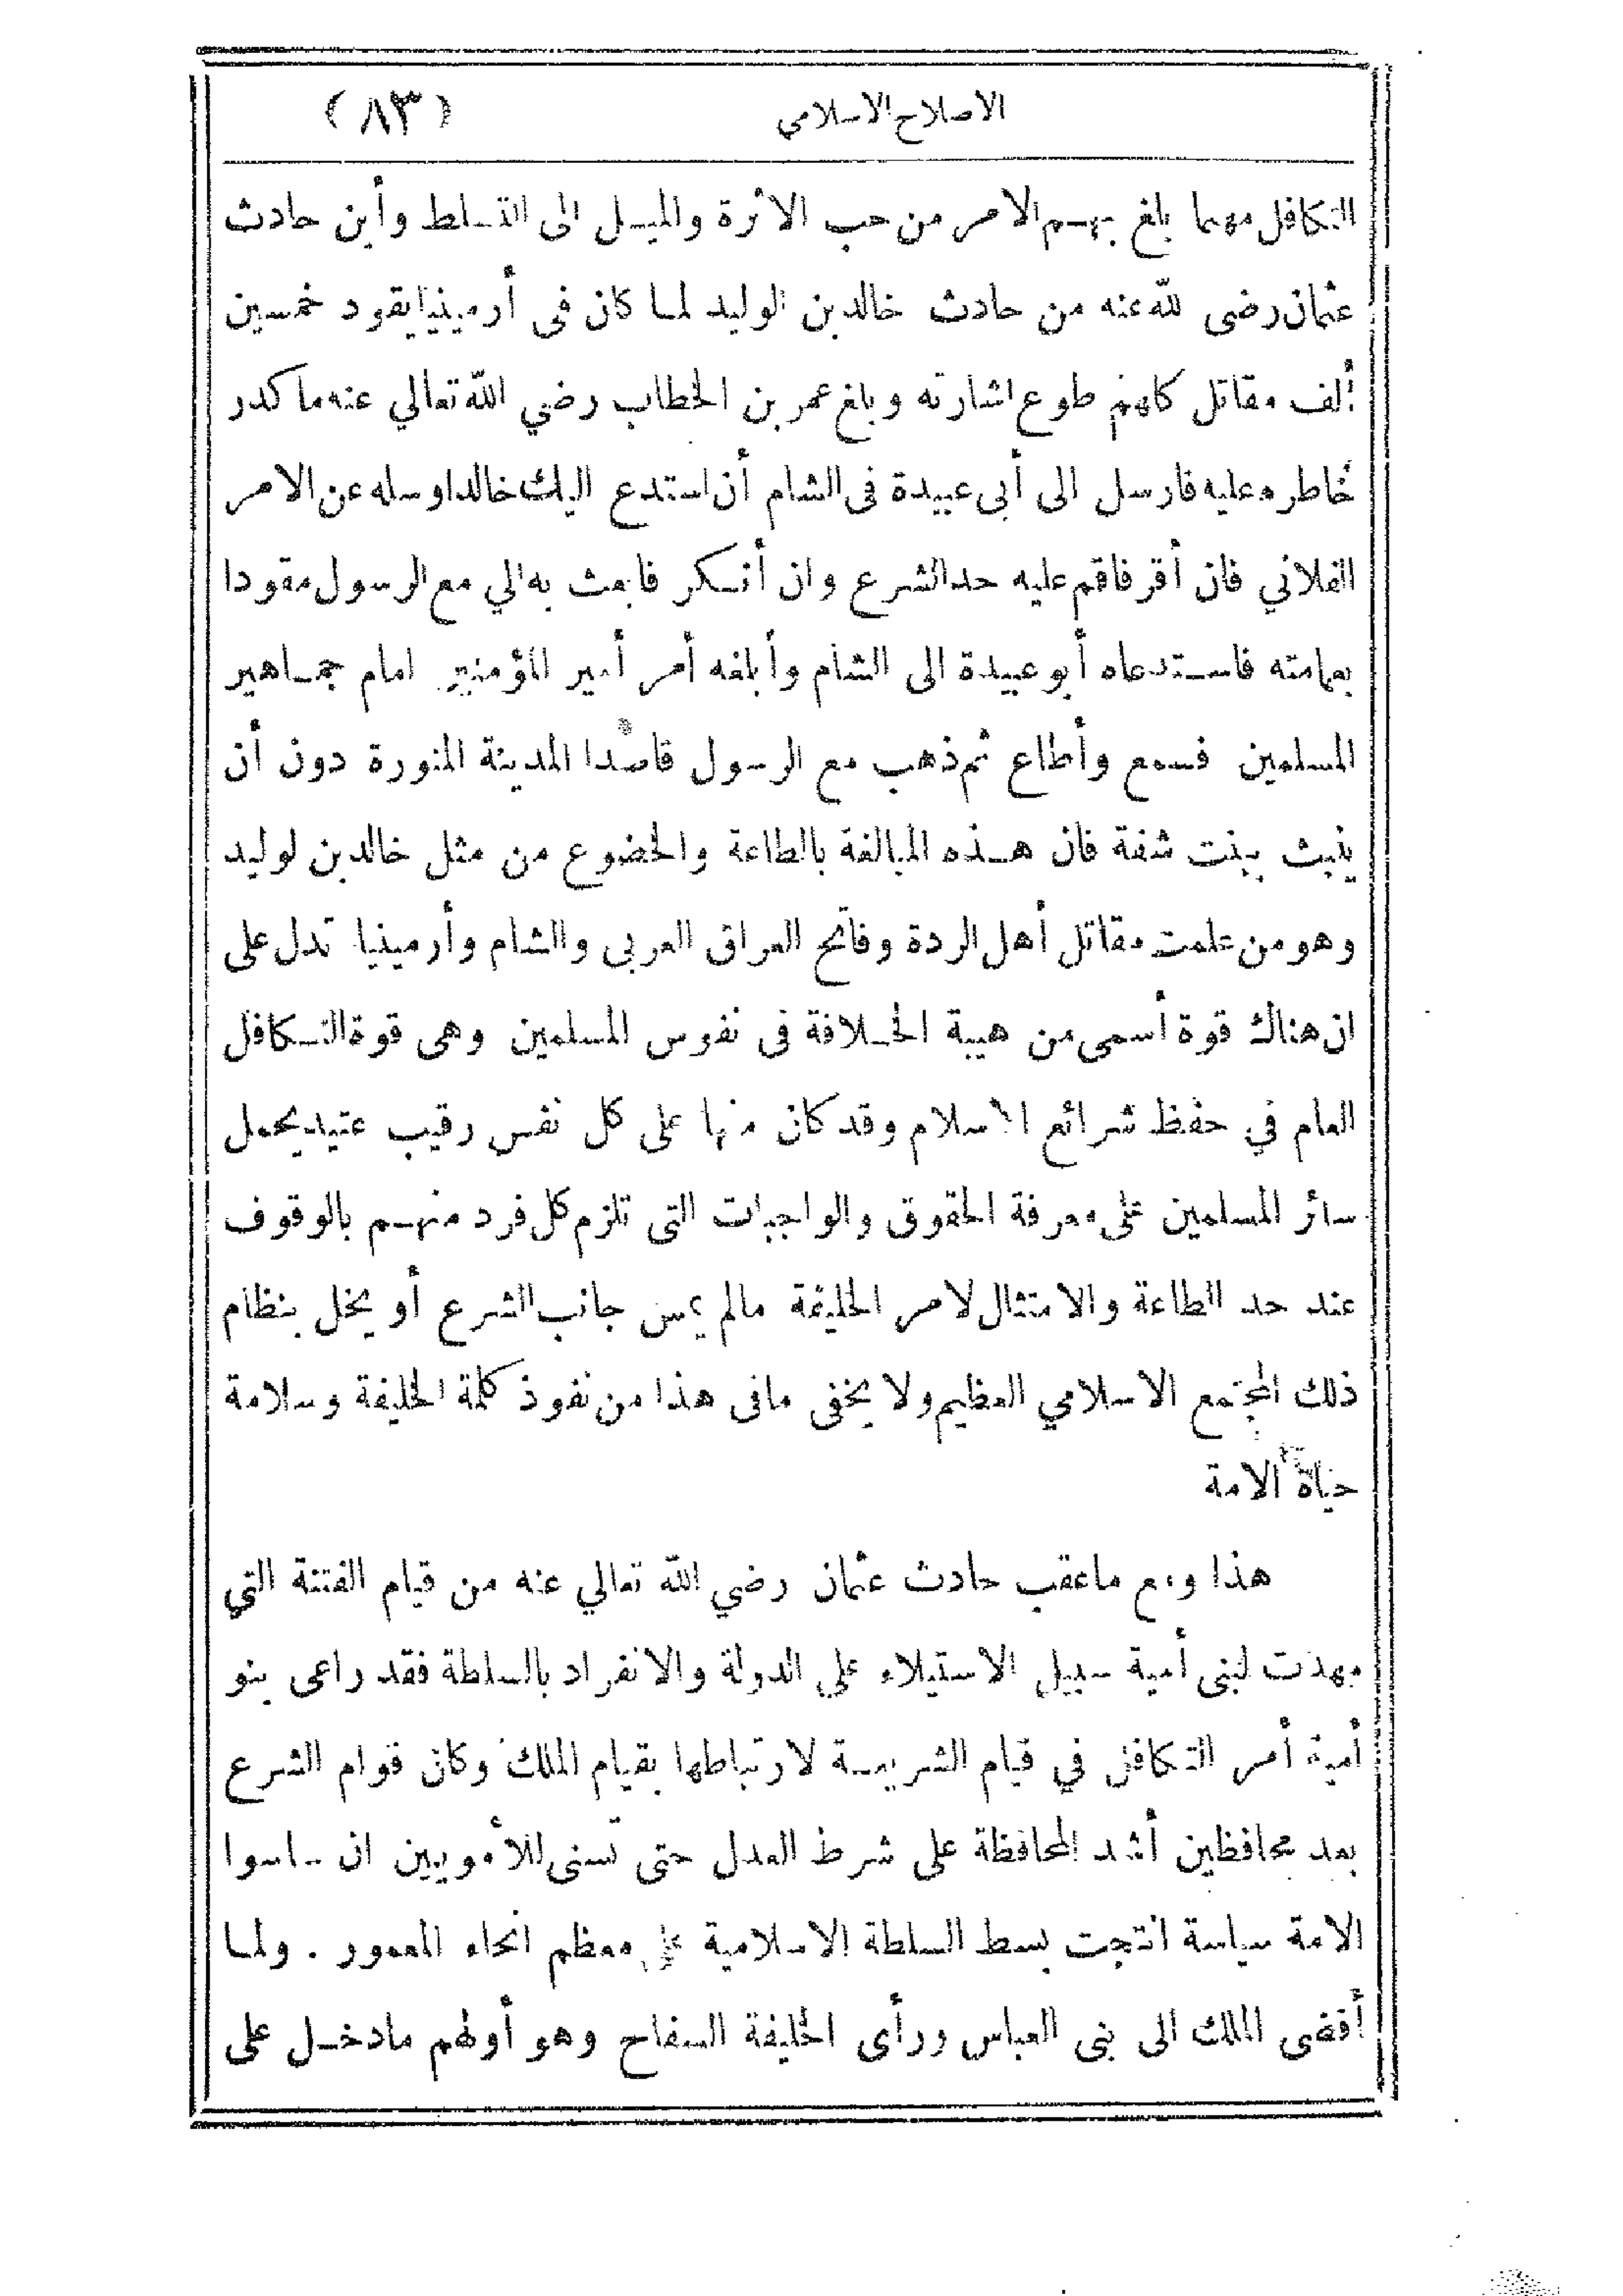 الاصلاح الاسلامي (٨٣)
التكافل مهما بلغ بهم الامر من حب الاثرة والميل الى التسلط وأين حادث
عثمان رضى الله عنه من حادث خالد بن الوليد لما كان فى أرمينيا يقود خمسين
ألف مقاتل كلهم طوع اشارته وبلغ عمر بن الخطاب رضي الله تعالي عنه ما كدر
خاطره عليه فارسل الى أبى عبيدة فى الشام أن استدع اليك خالدا وسله عن الامر
الفلاني فان أقر فاقم عليه حد الشرع وان أنكر فابعث به الي مع الرسول مقودا
بعمامته فاستدعاه أبو عبيدة الى الشام وأبلغه أمر أمير المؤمنين امام جماهير
المسلمين فسمع وأطاع ثم ذهب مع الرسول قاصدا المدينة المنورة دون أن
ينبث ببنت شفة فان هذه المبالغة بالطاعة والخضوع من مثل خالد بن لوليد
وهو من علمت مقاتل أهل الردة وفاتح العراق العربى والشام وأرمينيا تدل على
ان هناك قوة أسمى من هيبة الخلافة فى نفوس المسلمين وهى قوة التكافل
العام في حفظ شرائع الاسلام وقد كان منها على كل نفس رقيب عتيد يحمل
سائر المسلمين على معرفة الحقوق والواجبات التى تلزم كل فرد منهم بالوقوف
عند حد الطاعة والامتثال لامر الخليفة مالم يمس جانب الشرع أو يخل بنظام
ذلك المجتمع الاسلامي العظيم ولا يخفى مافى هذا من نفوذ كلمة الخليفة وسلامة
حياة الامة
هذا ومع ماعقب حادث عثمان رضي الله تعالي عنه من قيام الفتنة التي
مهدت لبنى أمية سبيل الاستيلاء علي الدولة والانفراد بالسلطة فقد راعى بنو
أمية أمر التكافل في قيام الشريعة لارتباطها بقيام الملك وكان قوام الشرع
بعد محافظين أشد المحافظة على شرط العدل حتى تسنى للأمويين ان ساسوا
الامة سياسة انتجت بسط السلطة الاسلامية على معظم انحاء المعمور . ولما
أفضى الملك الى بنى العباس ورأى الخليفة السفاح وهو أولهم مادخل على